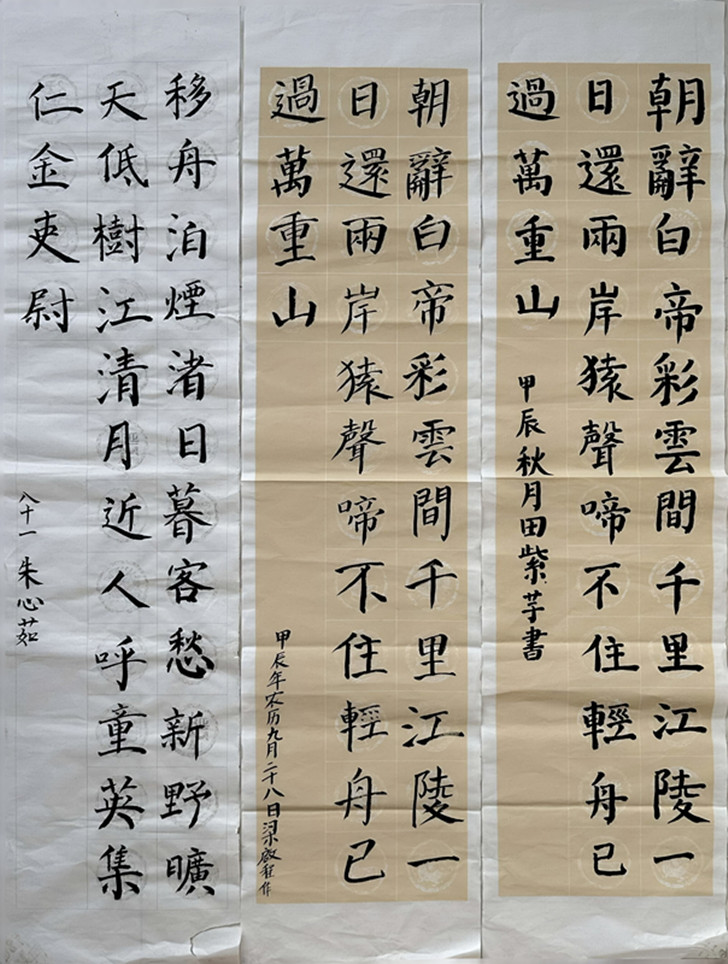 朝辭白帝彩雲間千里江陵一
日還兩岸猿聲啼不住輕舟已
過萬重山
甲辰秋月田紫芋書
朝辭白帝彩雲間千里江陵一
日還兩岸猿聲啼不住輕舟已
過萬重山
甲辰年农历九月二十八日梁啟程作
移舟泊煙渚日暮客愁新野曠
天低樹江清月近人呼童英集
仁金吏尉
八十一朱心茹